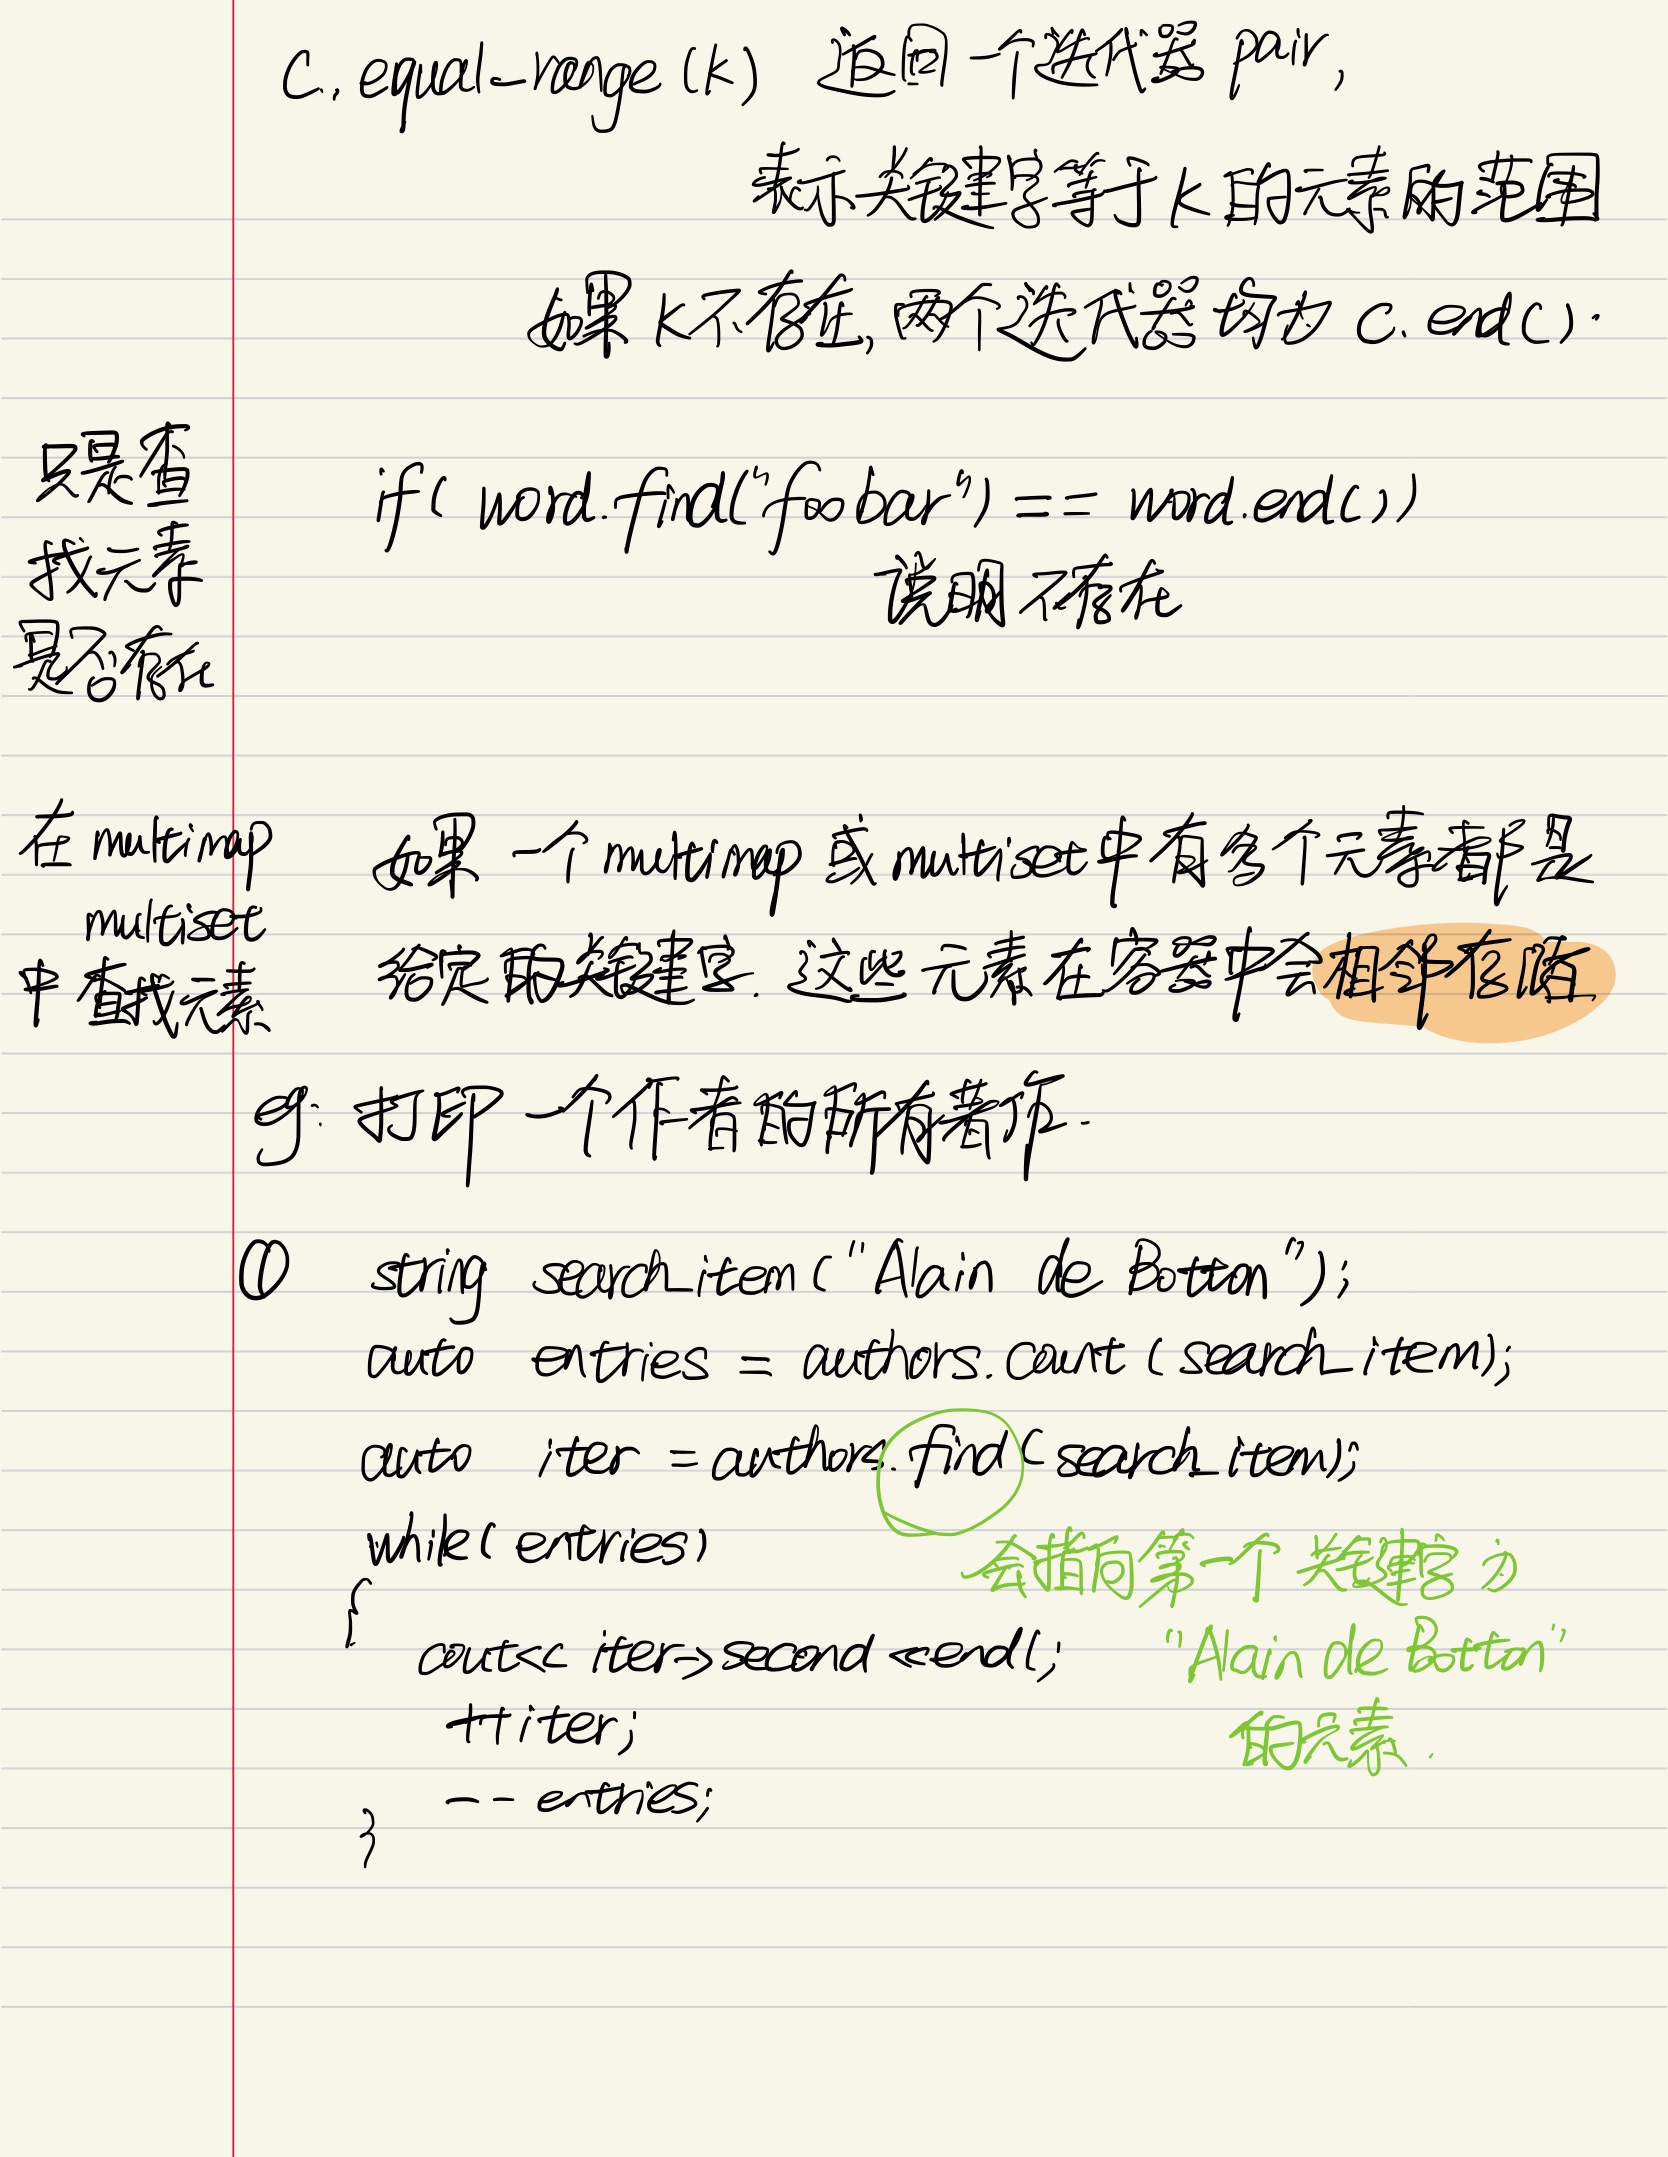 C. equal-range (k) 返回一个迭代器 pair,
表示关键字等于 k 的元素的范围
如果 k 不存在, 两个迭代器均为 c. end().
只是查
找元素
是否存在
if( word.find("foobar") == word.end())
说明不存在
在 multimap
multiset
中查找元素
如果一个 multimap 或 multiset 中有多个元素都是
给定的关键字. 这些元素在容器中会相邻存储
eg: 打印一个作者的所有著作.
① string search_item ("Alain de Botton");
auto entries = authors.count (search_item);
auto iter = authors.find (search_item);
while( entries)
会指向第一个关键字为
{
cout<< iter->second <<endl;
"Alain de Botton"
++iter;
的元素.
-- entries;
}